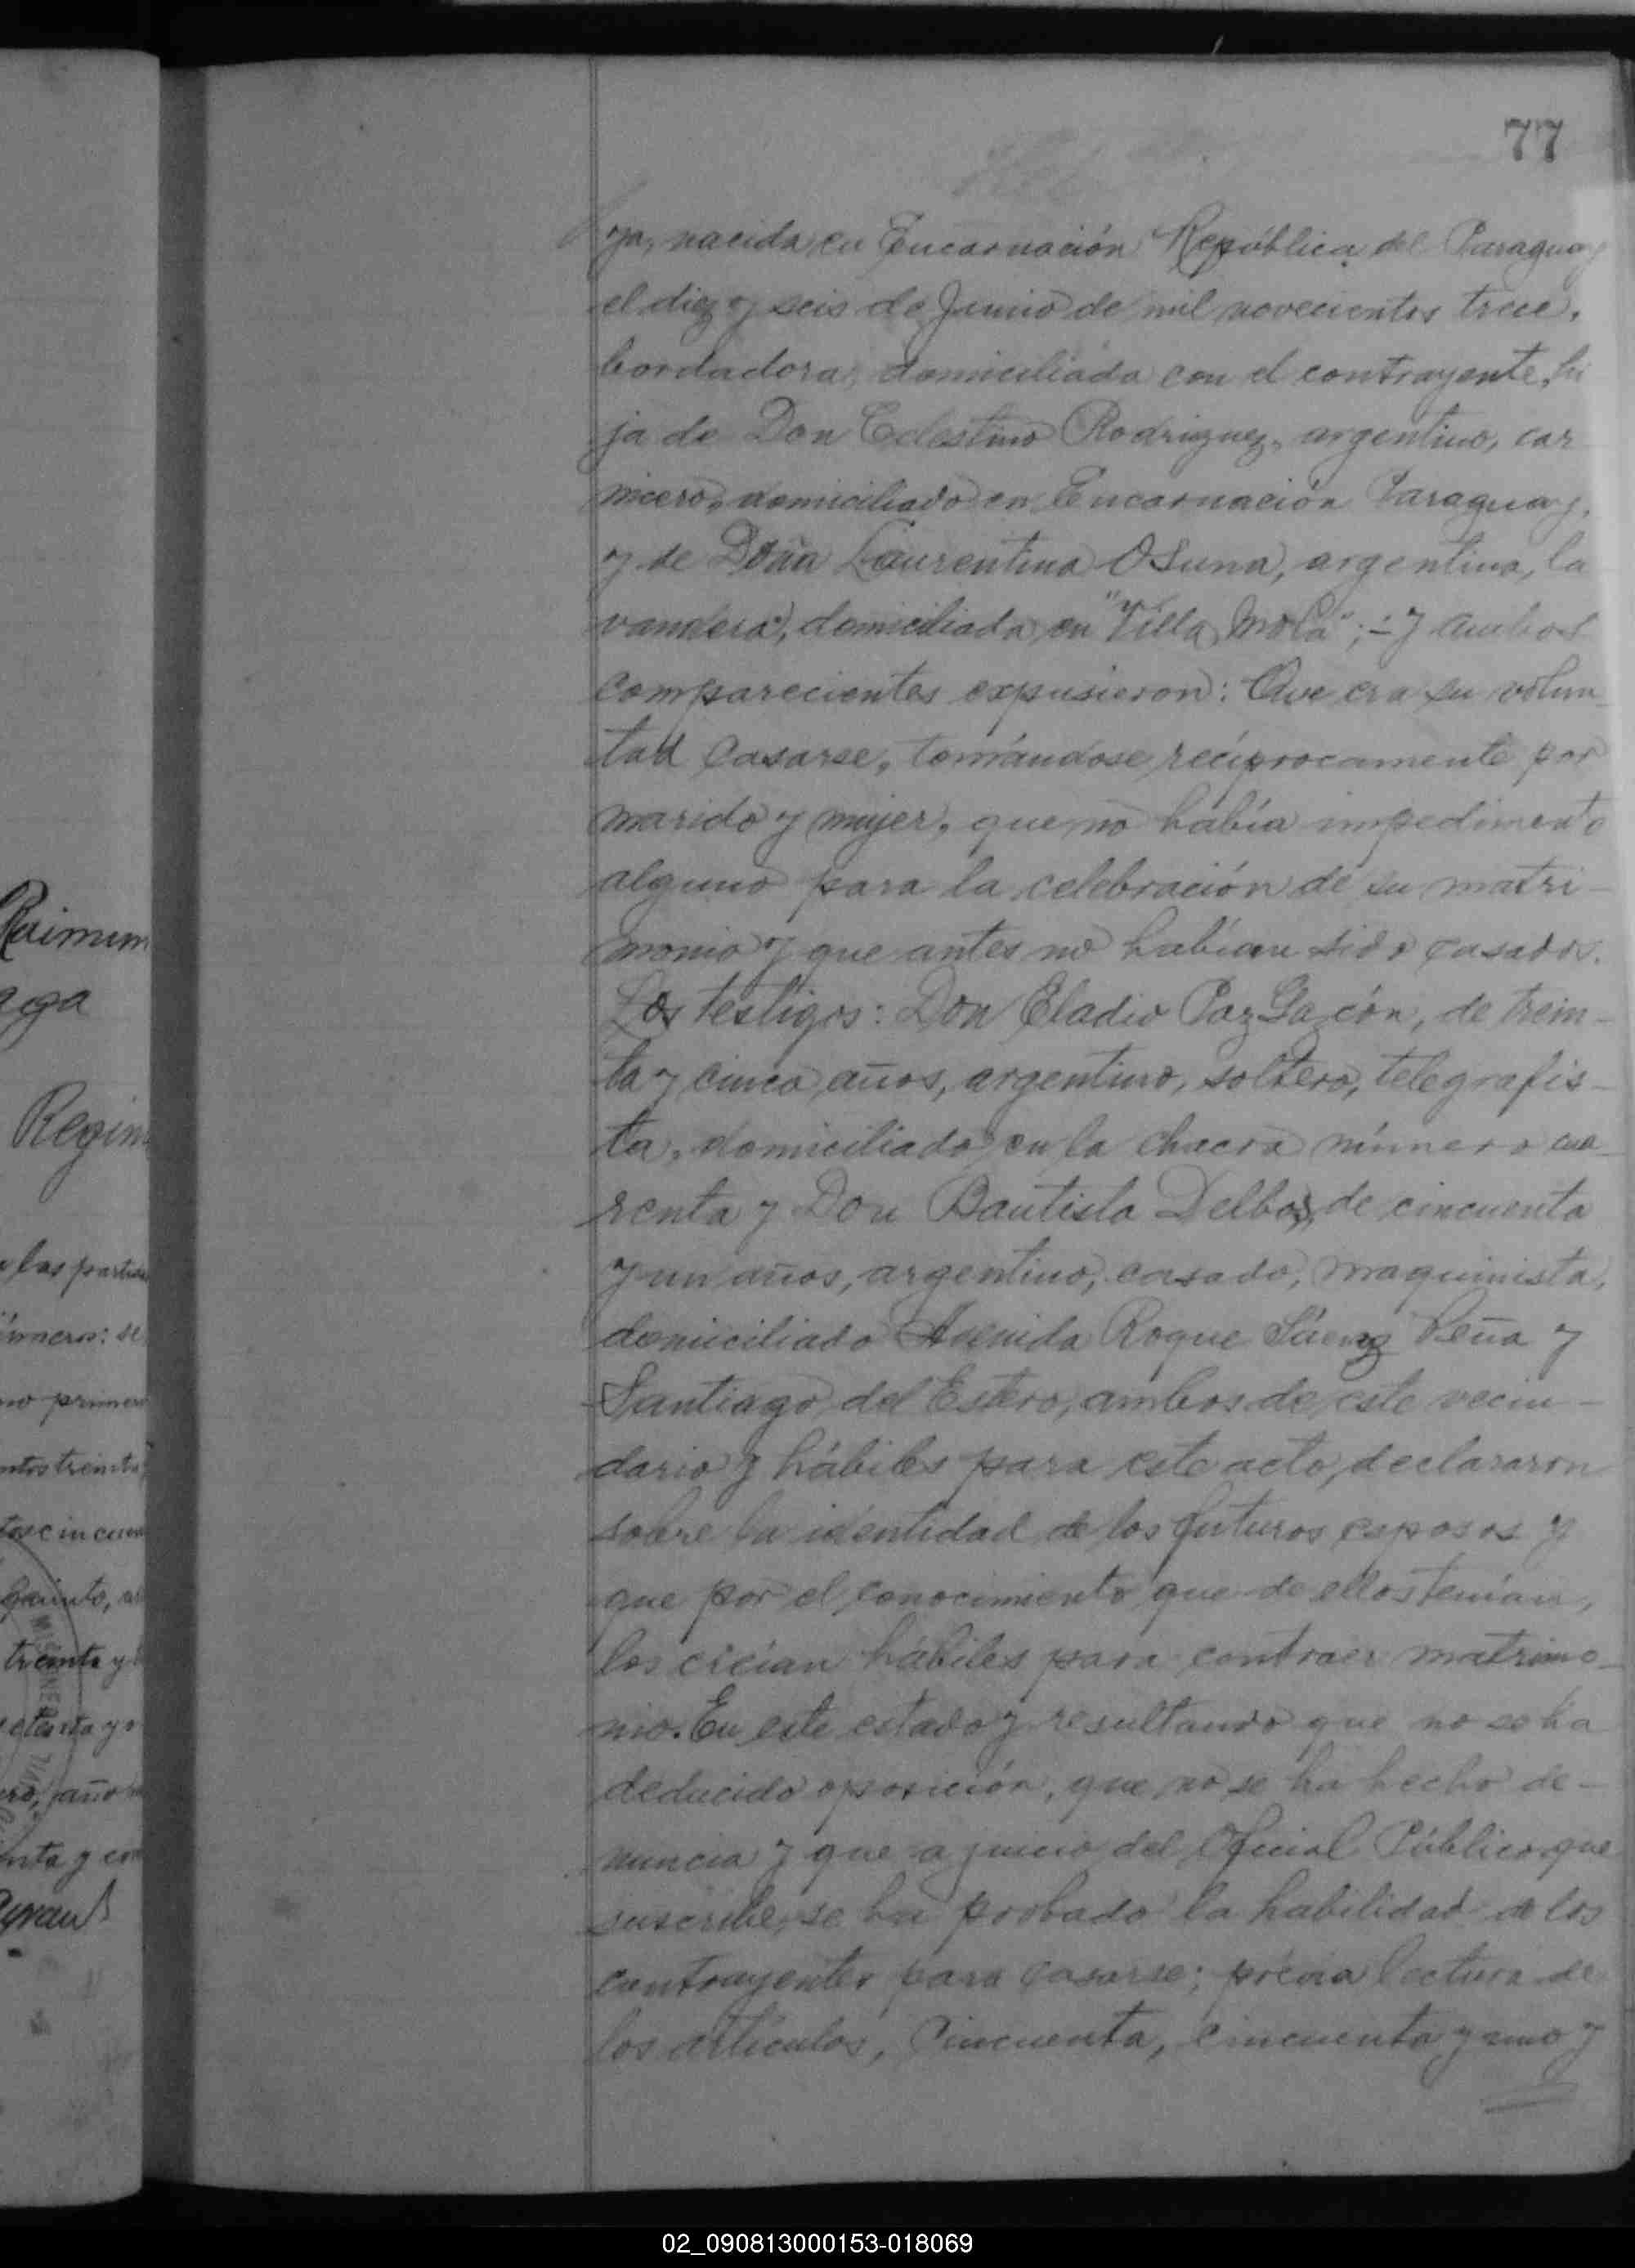 77
ya, nacida en Encarnación República del Paraguay
el diez y seis de Junio de mil novecientos trece,
bordadora, domiciliada con el contrayente, hi
ja de Don Celestino Rodriguez, argentino, car
nicero, domiciliado en Encarnación Paraguay,
y de Doña Laurentina Osuna, argentina, la
vandera, domiciliada en "Villa Mola"; - y ambos
comparecientes expusieron: Que era su volun
tad casarse, tomándose recíprocamente por
marido y mujer, que no había impedimento
alguno para la celebración de su matri-
monio y que antes no habían sido casados.
Los testigos: Don Eladio Paz Gacón, de trein-
ta y cinco años, argentino, soltero, telegrafis-
ta, domiciliado en la chacra número cua-
renta y Don Bautista Delbos, de cincuenta
y un años, argentino, casado, maquinista,
domiciliado Avenida Roque Sáenz Peña y
Santiago del Estero, ambos de este vecin-
dario y hábiles para este acto, declararon
sobre la identidad de los futuros esposos y
que por el conocimiento que de ellos tenían,
los creían hábiles para contraer matrimo-
nio. En este estado y resultando que no se ha
deducido oposición, que no se ha hecho de-
nuncia y que a juicio del Oficial Público que
suscribe, se ha probado la habilidad de los
contrayentes para casarse; prévia lectura de
los artículos, Cincuenta, cincuenta y uno y
Raimun
aga
Regin
las partid
números: se
no primero
ntos treinta
quinto,
treinta y
etenta y
año
nta y
02_090813000153-018069